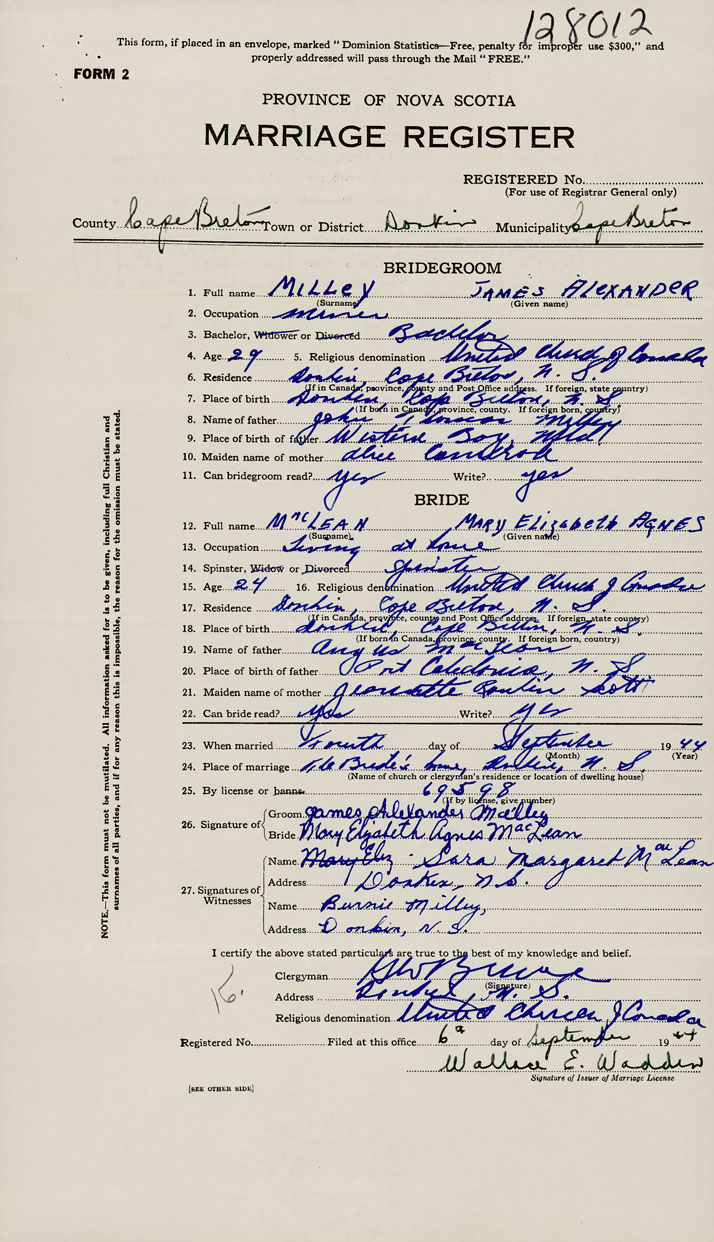 128012
This form, if placed in an envelope, marked “Dominion Statistics—Free, penalty for improper use $300,” and
properly addressed will pass through the Mail “FREE.”
FORM 2
PROVINCE OF NOVA SCOTIA
MARRIAGE REGISTER
REGISTERED No.
(For use of Registrar General only)
County Cape Breton Town or District Donkin Municipality Cape Breton
BRIDEGROOM
1. Full name MILLEY JAMES ALEXANDER
(Surname) (Given name)
2. Occupation miner
3. Bachelor, Widower or Divorced Bachelor
4. Age 29 5. Religious denomination United Church of Canada
6. Residence Donkin, Cape Breton, N. S.
(If in Canada, province, county and Post Office address. If foreign, state country)
7. Place of birth Donkin, Cape Breton, N. S.
(If born in Canada, province, county. If foreign born, country)
8. Name of father John Thomas Milley
9. Place of birth of father Western Bay, Nfld
10. Maiden name of mother Alice
11. Can bridegroom read? yes Write? yes
BRIDE
12. Full name MacLEAN MARY ElizabEth AGNES
(Surname) (Given name)
13. Occupation Living at home
14. Spinster, Widow or Divorced Spinster
15. Age 24 16. Religious denomination United Church of Canada
17. Residence Donkin, Cape Breton, N. S.
(If in Canada, province, county and Post Office address. If foreign, state country)
18. Place of birth Donkin, Cape Breton, N. S.
(If born in Canada, province, county. If foreign born, country)
19. Name of father Angus MacLean
20. Place of birth of father Port Caledonia, N. S
21. Maiden name of mother Scott
22. Can bride read? yes Write? yes
23. When married Fourth day of September 1944
(Month) (Year)
24. Place of marriage The Bride's home, Donkin, N. S.
(Name of church or clergyman's residence or location of dwelling house)
25. By license or banns 69598
(If by license, give number)
26. Signature of Groom James Alexander Milley
Bride Mary Elizabeth Agnes MacLean
27. Signatures of Witnesses
Name Mary Eliz Sara Margaret MacLean
Address Donkin, N.S.
Name Burnie Milley,
Address Donkin, N. S.
I certify the above stated particulars are true to the best of my knowledge and belief.
Clergyman
(Signature)
Address Donkin, N. S.
Religious denomination United Church of Canada
Registered No. Filed at this office 6th day of September 1944
Wallace E. Wadden
Signature of Issuer of Marriage License
[SEE OTHER SIDE]
NOTE.—This form must not be mutilated. All information asked for is to be given, including full Christian and
surnames of all parties, and if for any reason this is impossible, the reason for the omission must be stated.